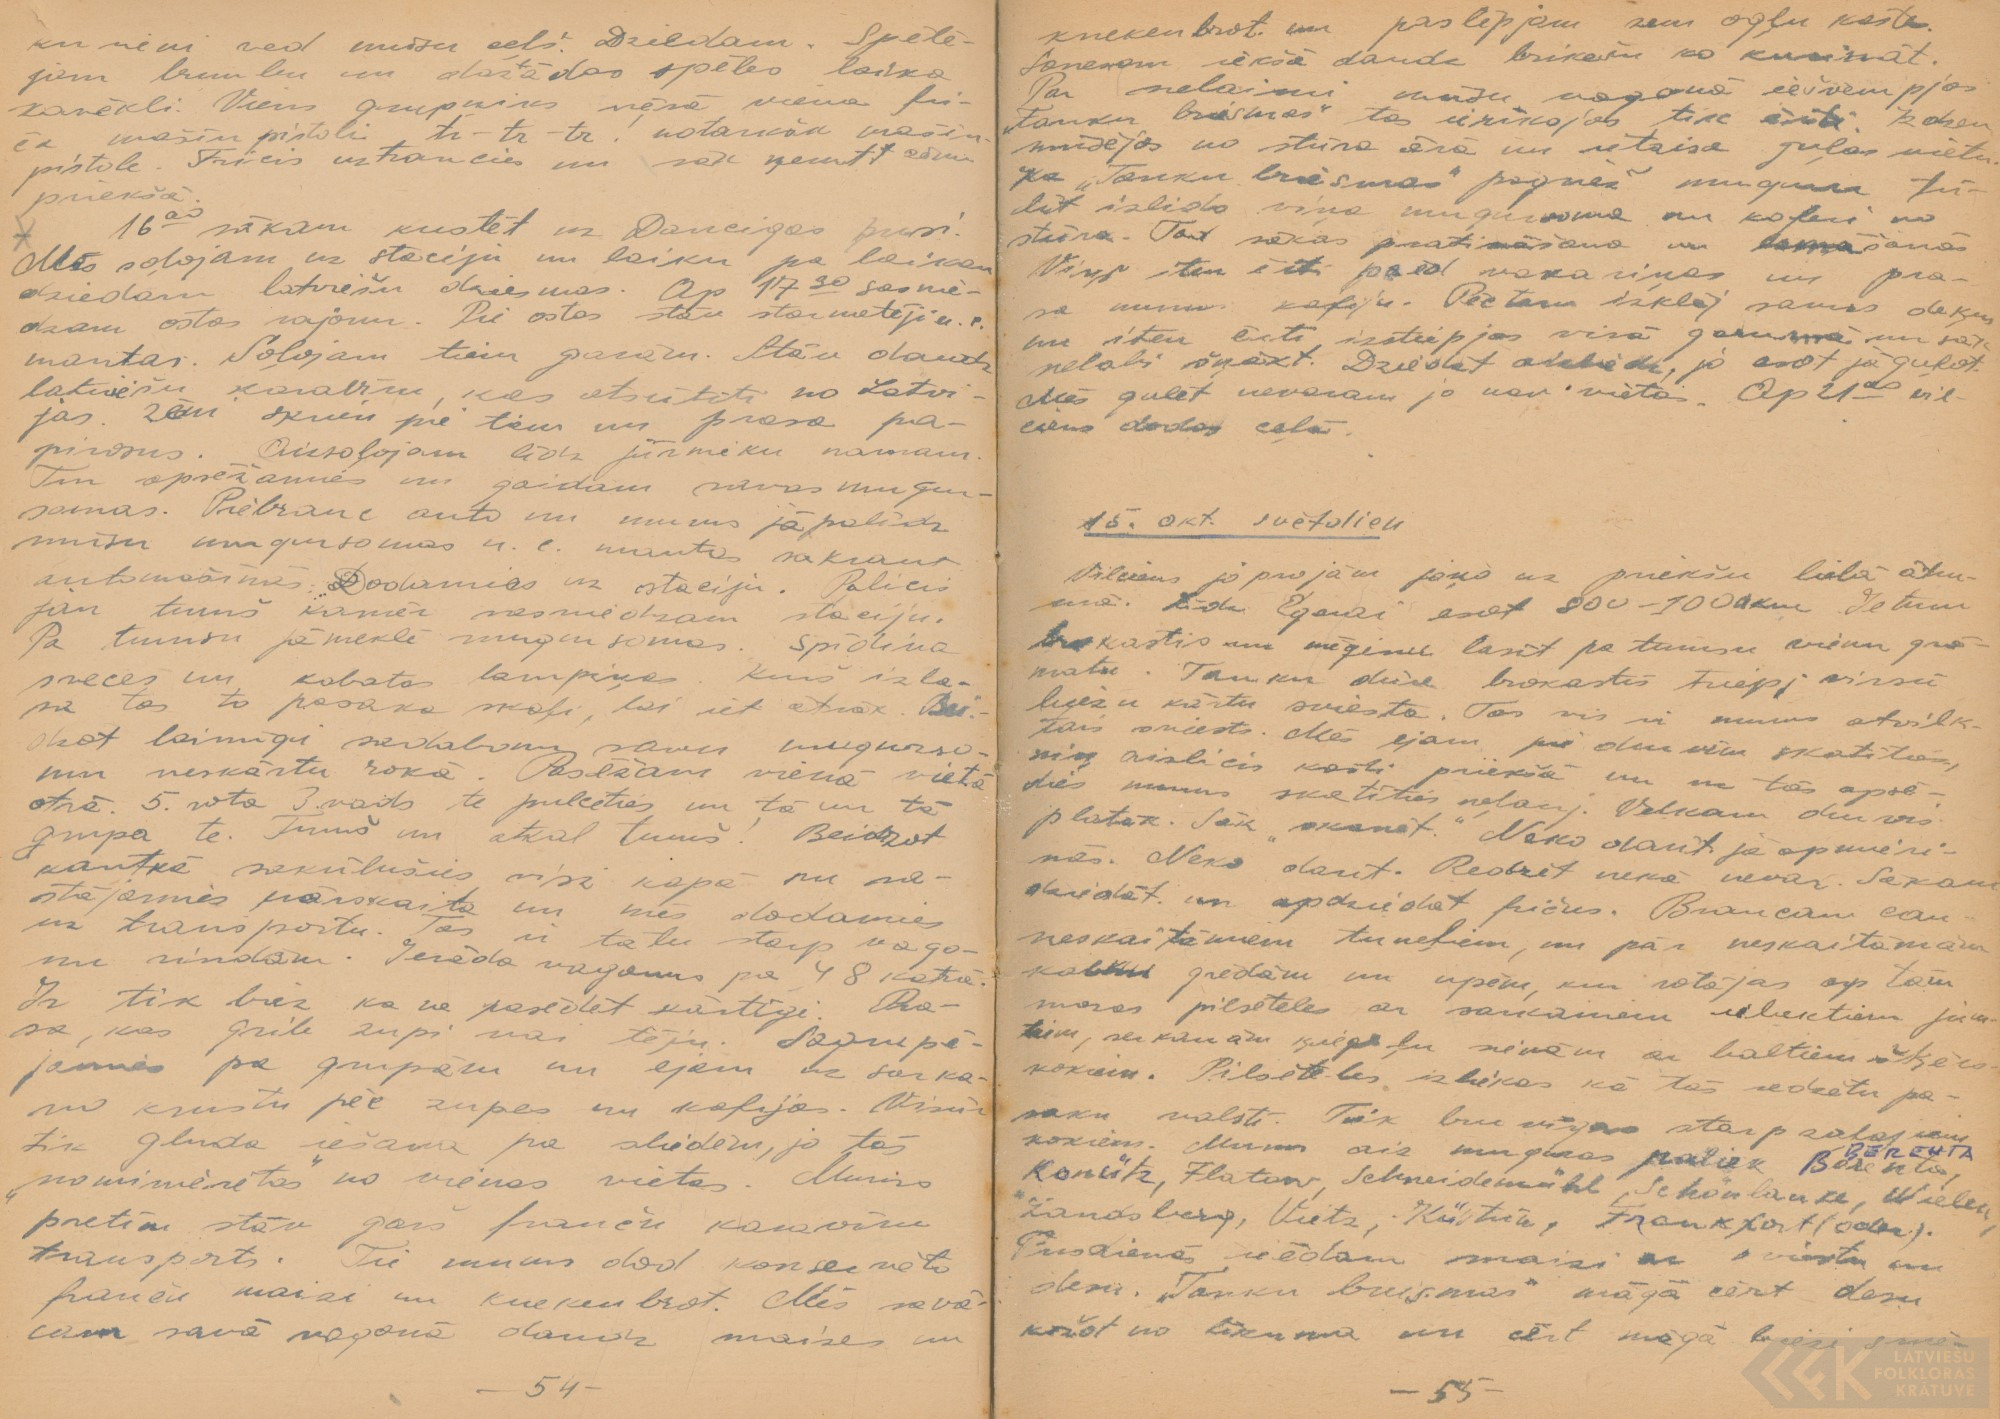 kureni ved mūsu ceļš. Dziedam. Spēlē-
jam bumbu un dažādas spēles laika
kavēkli. Viens grupniks nēsā viena fri-
ča mašīnpistoli tr-tr-tr. notarkšķ mašīn-
pistole. Fricis uztraucies un sāk ņemt
priekšā.
16°° sākam kustēt uz Dancigas pusi.
Mēs soļojam uz staciju un laiku pa laikam
dziedam latviešu dziesmas. Ap 17³⁰ sasnie-
dzam ostas rajonu. Pie ostas stāv starmetēji u.c.
mantas. Soļojam tiem garām. Stāv daudz
latviešu karavīru, kas atsūtīti no Latvi-
jas. Zēni skrien pie tiem un prasa pa-
pirosus. Aizsoļojam līdz jūrnieku namam.
Tur apsēžamies un gaidām savas mugur-
somas. Piebrauc auto un mums jāpalīdz
mūsu mugursomas u.c. mantas sakraut
automašīnās. Dodamies uz staciju. Palicis
jau tumšs kamēr sasniedzam staciju.
Pa tumsu jāmeklē mugursomas. Spīdina
sveces un kabatas lampiņas. Kurš izla-
sa tas to pasaka skaļi, lai iet ātrāk. Bei-
dzot laimīgi sadabonu savu mugurso-
mu neskartu rokā. Pasēžam vienā vietā
otrā. 5. rota 3. vads te pulcēties un tā un tā
grupa te. Tumšs un atkal tumšs! Beidzot
kautkā sakūlušies visi kopā un sa-
stājamies pārskaita un mēs dodamies
uz transportu. Tas ir tālu starp vago-
nu rindām. Ierāda vagonus pa 48 katrā.
Ir tik biez ka va pasēdēt kārtīgi. Pra-
sa, kas grib zupi vai tēju. Sagrupē-
jamies pa grupām un ejam uz sarka-
no krustu pēc zupes un kafijas. Visur
tik gluda iešana pa sliedēm, jo tās
"nominierētas" no vienas vietas. Mums
pretim stāv garš franču karavīru
transports. Tie mums dod konservēto
franču maizi un knekenbrot. Mēs savā-
cam savā vagonā daudz maizes un
— 54 —
knekenbrot. un paslēpjam zem ogļu kaste.
Sanesam iekšā daudz brikešu ko kurināt.
Par nelaimi mūsu vagonā iešvempjas
"Tanku briesmas" tas ierīkojas tik ērti. Izdzen
mūsējos no stūra ārā un ietaisa guļas vietu.
Ka "Tanku briesmas" pagriež muguru tū-
līt izlido viņa mugursoma un koferi no
stūra. Tad sākas
Viņš iten ērti paēd vakariņas un pra-
sa mums kafiju. Pēc tam izklāj savus deķus
un iten ērti izstiepjas visā garumā un sāk
nelabi šņākt. Dziedāt aizliedz, jo esot jāguļot.
Mēs gulēt nevaram jo nav vietas. Ap 21°° vil-
ciens dodas ceļā.
15. okt. svētdien
Vilciens joprojām joņo uz priekšu lielā ātru-
mā. Līdz Egerai esot 800-1000km Ieturu
brokastis un mēģinu lasīt pa tumsu vienu grā-
matu. Tanku dūre brokastīs triepj virsū
biezu kārtu sviesta. Tas vis ir mums atvilk-
tais sviests. Mēs ejam pie durvīm skatīties,
viņ aizlicis kasti priekšā un uz tās apsē-
dies mums skatīties neļauj. Velkam durvis
platāk. Sāk "skanēt." Neko darīt jāapmieri-
nās. Neko darīt. Redzēt nekā nevar. Sākam
dziedāt un apdziedāt fričus. Braucam cau-
neskaitāmiem tuneļiem, un pār neskaitāmām
kalnu grēdām un upēm, kur rotājas ap tām
mazas pilsētelas ar sarkaniem jum-
tiem, sarkanām ķieģeļu sienām ar baltiem šķērs-
kokiem. Pilsētelas izliekas kā tās redzētu pa-
saku valstī. Tik brīnišķas starp zaļajiem
kokiem. Mums aiz muguras paliek Berenta, BERENTA
Konitz, Flatow, Schneidemühl, Schönlanke, Wielen,
Landsberg, Vietz, Küstrin, Frankfort (oder).
Pusdienās ēdam maizi ar sviestu un
desu. "Tanku briesmas" māgā cērt desu
kožot no likuma un cērt māgā biezi smē-
— 55 —
LATVIEŠU
FOLKLORAS
KRĀTUVE